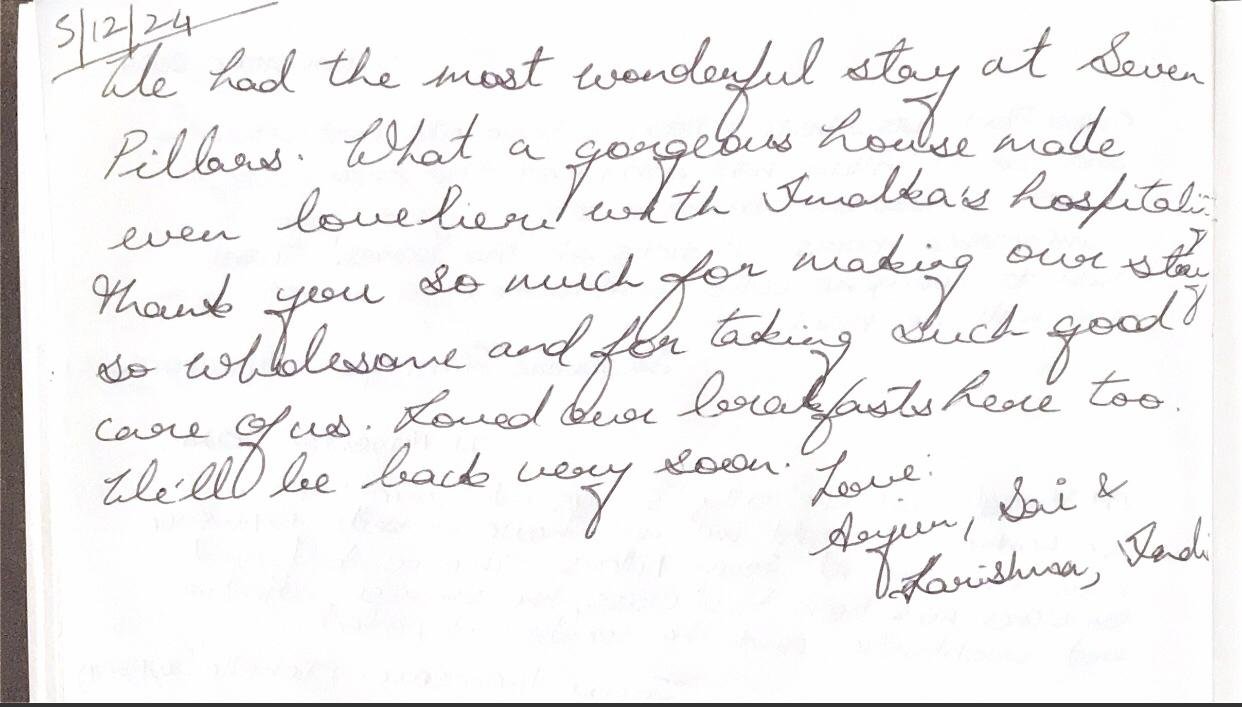 5/12/24
We had the most wonderful stay at Seven
Pillars. What a gorgeous house made
even lovelier with Imalka's hospitality
Thank you so much for making our stay
so wholesome and for taking such good
care of us. Loved our breakfasts here too.
We'll be back very soon. Love:
Sai &
Karishma,